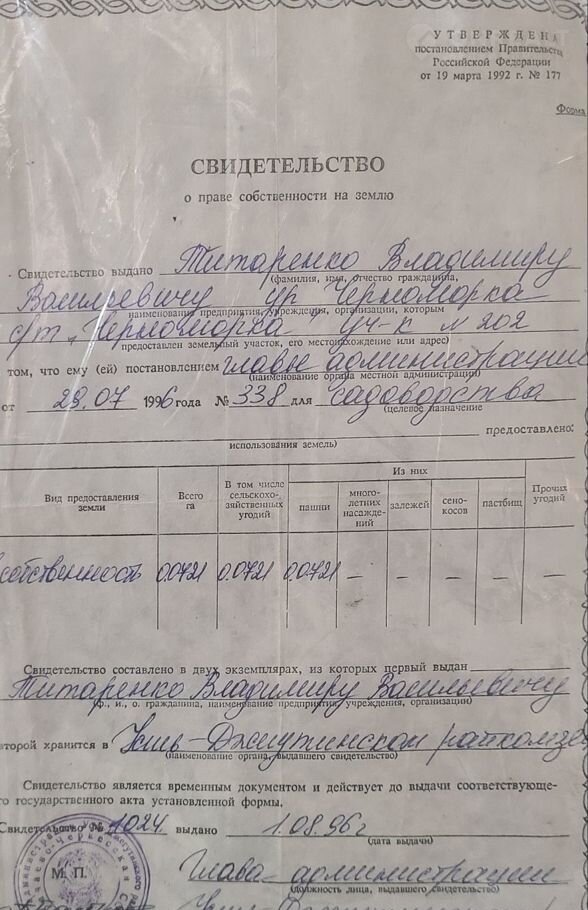 УТВЕРЖДЕНА
постановлением Правительст
Российской Федерации
от 19 марта 1992 г. № 177
Форма
СВИДЕТЕЛЬСТВО
о праве собственности на землю
Свидетельство выдано Титаренко Владимиру
(фамилия, имя, отчество гражданина,
Васильевичу ур. Черноморка
наименование предприятия, учреждения, организации, которым
с/т „Черноморка" уч-к № 202
предоставлен земельный участок, его местонахождение или адрес)
том, что ему (ей) постановлением главы администрации
(наименование органа местной администрации)
от 29.07 1996 года № 338 для садоводства
(целевое назначение
предоставлено:
использования земель)
Вид предоставления земли
Всего га
В том числе сельскохо-зяйственных угодий
Из них
пашни
много-летних насажде-ний
залежей
сено-косов
пастбищ
Прочих угодий
собственность 0.0721 0.0721 0.0721 – – – – –
Свидетельство составлено в двух экземплярах, из которых первый выдан
Титаренко Владимиру Васильевичу
(ф., и., о. гражданина, наименование предприятия, учреждения, организации)
второй хранится в Усть-Джегутинском райкомзе
(наименование органа, выдавшего свидетельство)
Свидетельство является временным документом и действует до выдачи соответствующе-
го государственного акта установленной формы.
Свидетельство № 1024 выдано 1.08.96 г
(дата выдачи)
М. П.
Глава администрации
(должность лица, выдавшего свидетельство)